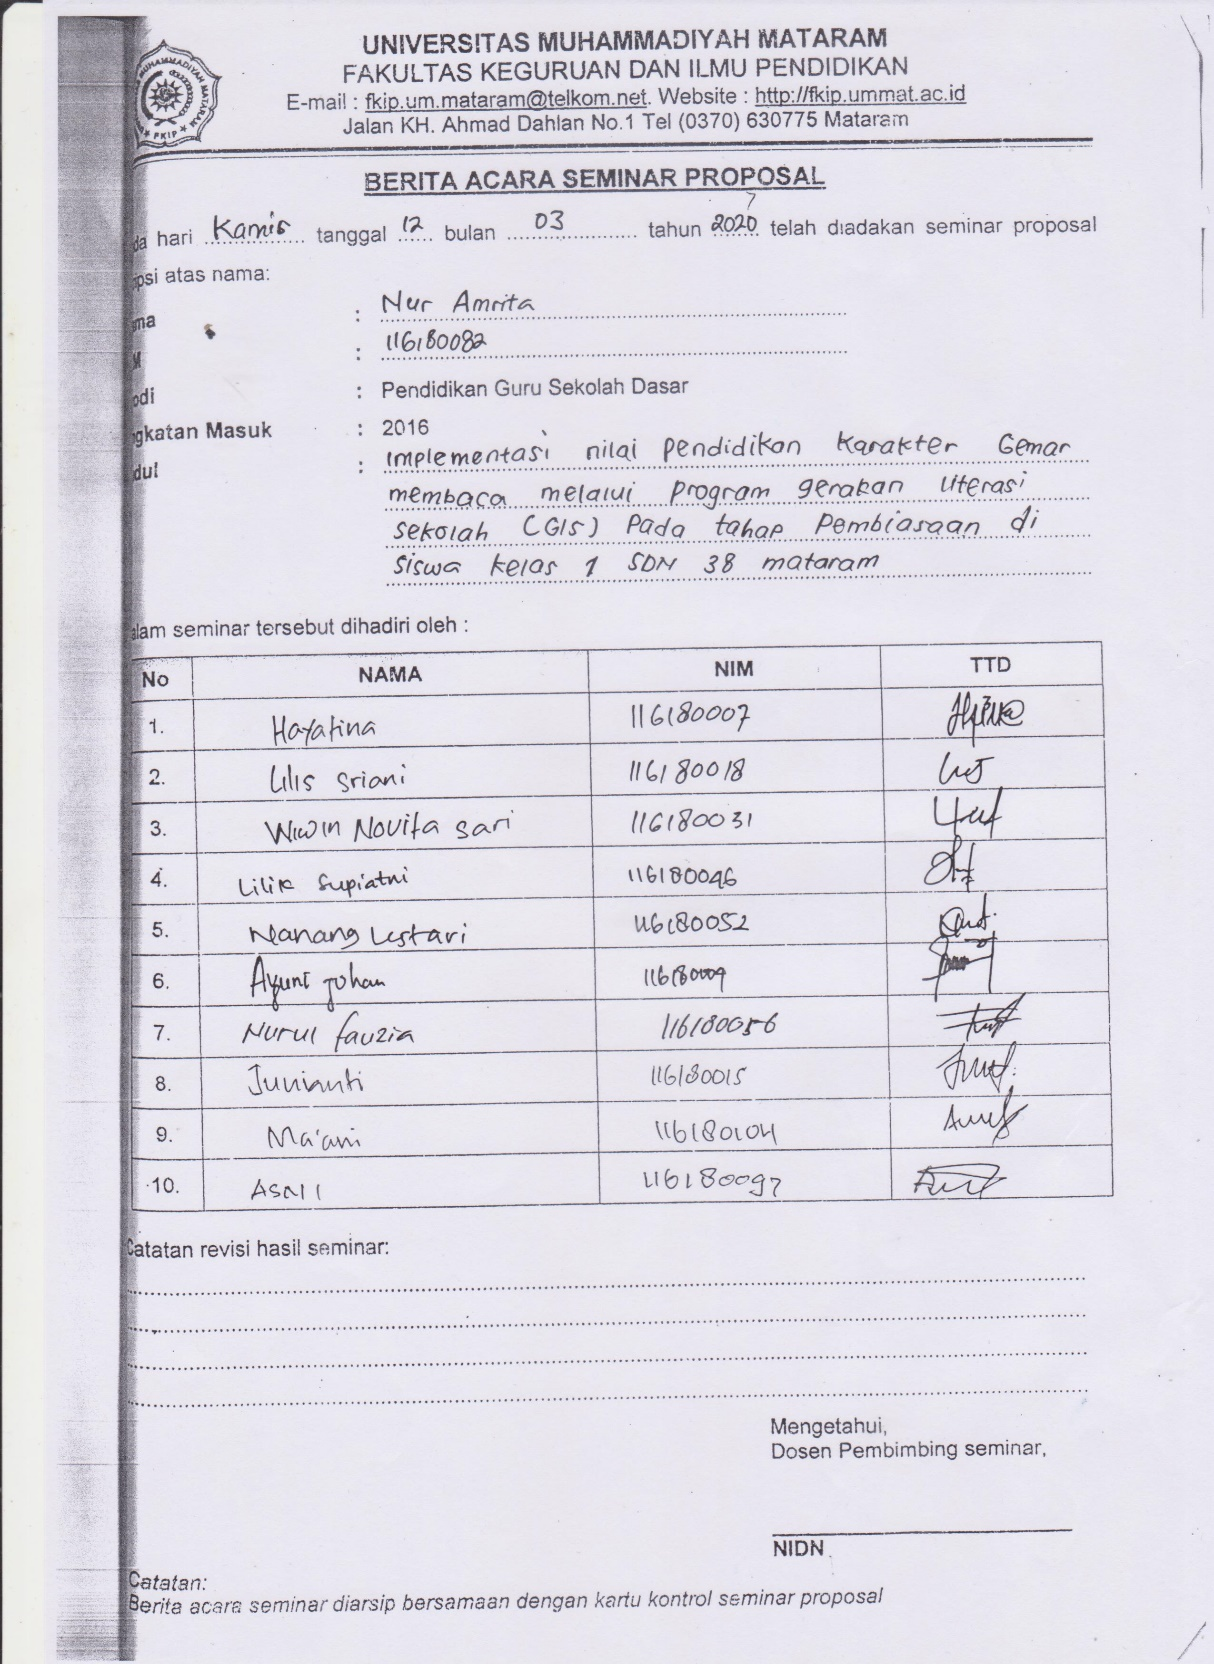 UNIVERSITAS MUHAMMADIYAH MATARAM
FAKULTAS KEGURUAN DAN ILMU PENDIDIKAN
E-mail : fkip.um.mataram@telkom.net. Website : http://fkip.ummat.ac.id
Jalan KH. Ahmad Dahlan No.1 Tel (0370) 630775 Mataram
MUHAMMADIYAH MATARAM
FKIP
BERITA ACARA SEMINAR PROPOSAL
da hari Kamis tanggal 12 bulan 03 tahun 2020 telah diadakan seminar proposal
psi atas nama:
ma : Nur Amrita
M : 116180082
odi : Pendidikan Guru Sekolah Dasar
gkatan Masuk : 2016
dul : Implementasi nilai pendidikan karakter Gemar
membaca melalui program gerakan literasi
sekolah (GLS) Pada tahap Pembiasaan di
siswa kelas 1 SDN 38 mataram
alam seminar tersebut dihadiri oleh :
No NAMA NIM TTD
1. Hayatina 116180007
2. Lilis Sriani 116180018
3. Wiwin Novita Sari 116180031
4. Lilik Supiatni 116180046
5. Nanang Lestari 116180052
6. Ayuni Johan
7. Nurul fauzia 116180056
8. Junianti 116180015
9. Ma'ani 116180104
10. 116180097
Catatan revisi hasil seminar:
Mengetahui,
Dosen Pembimbing seminar,
NIDN
Catatan:
Berita acara seminar diarsip bersamaan dengan kartu kontrol seminar proposal